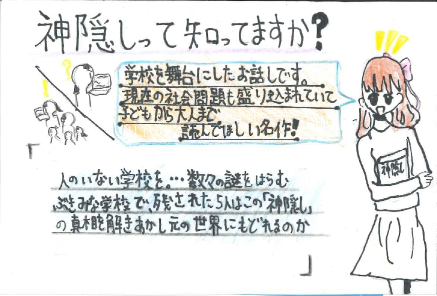 神隠しって知ってますか?
学校を舞台にしたお話しです。
現在の社会問題も盛り込まれていて
子どもから大人まで
読んでほしい名作!
神隠し
「
人のいない学校を…数々の謎をはらむ
ぶきみな学校で、残された5人はこの「神隠し」
の真相を解きあかし元の世界にもどれるのか
」